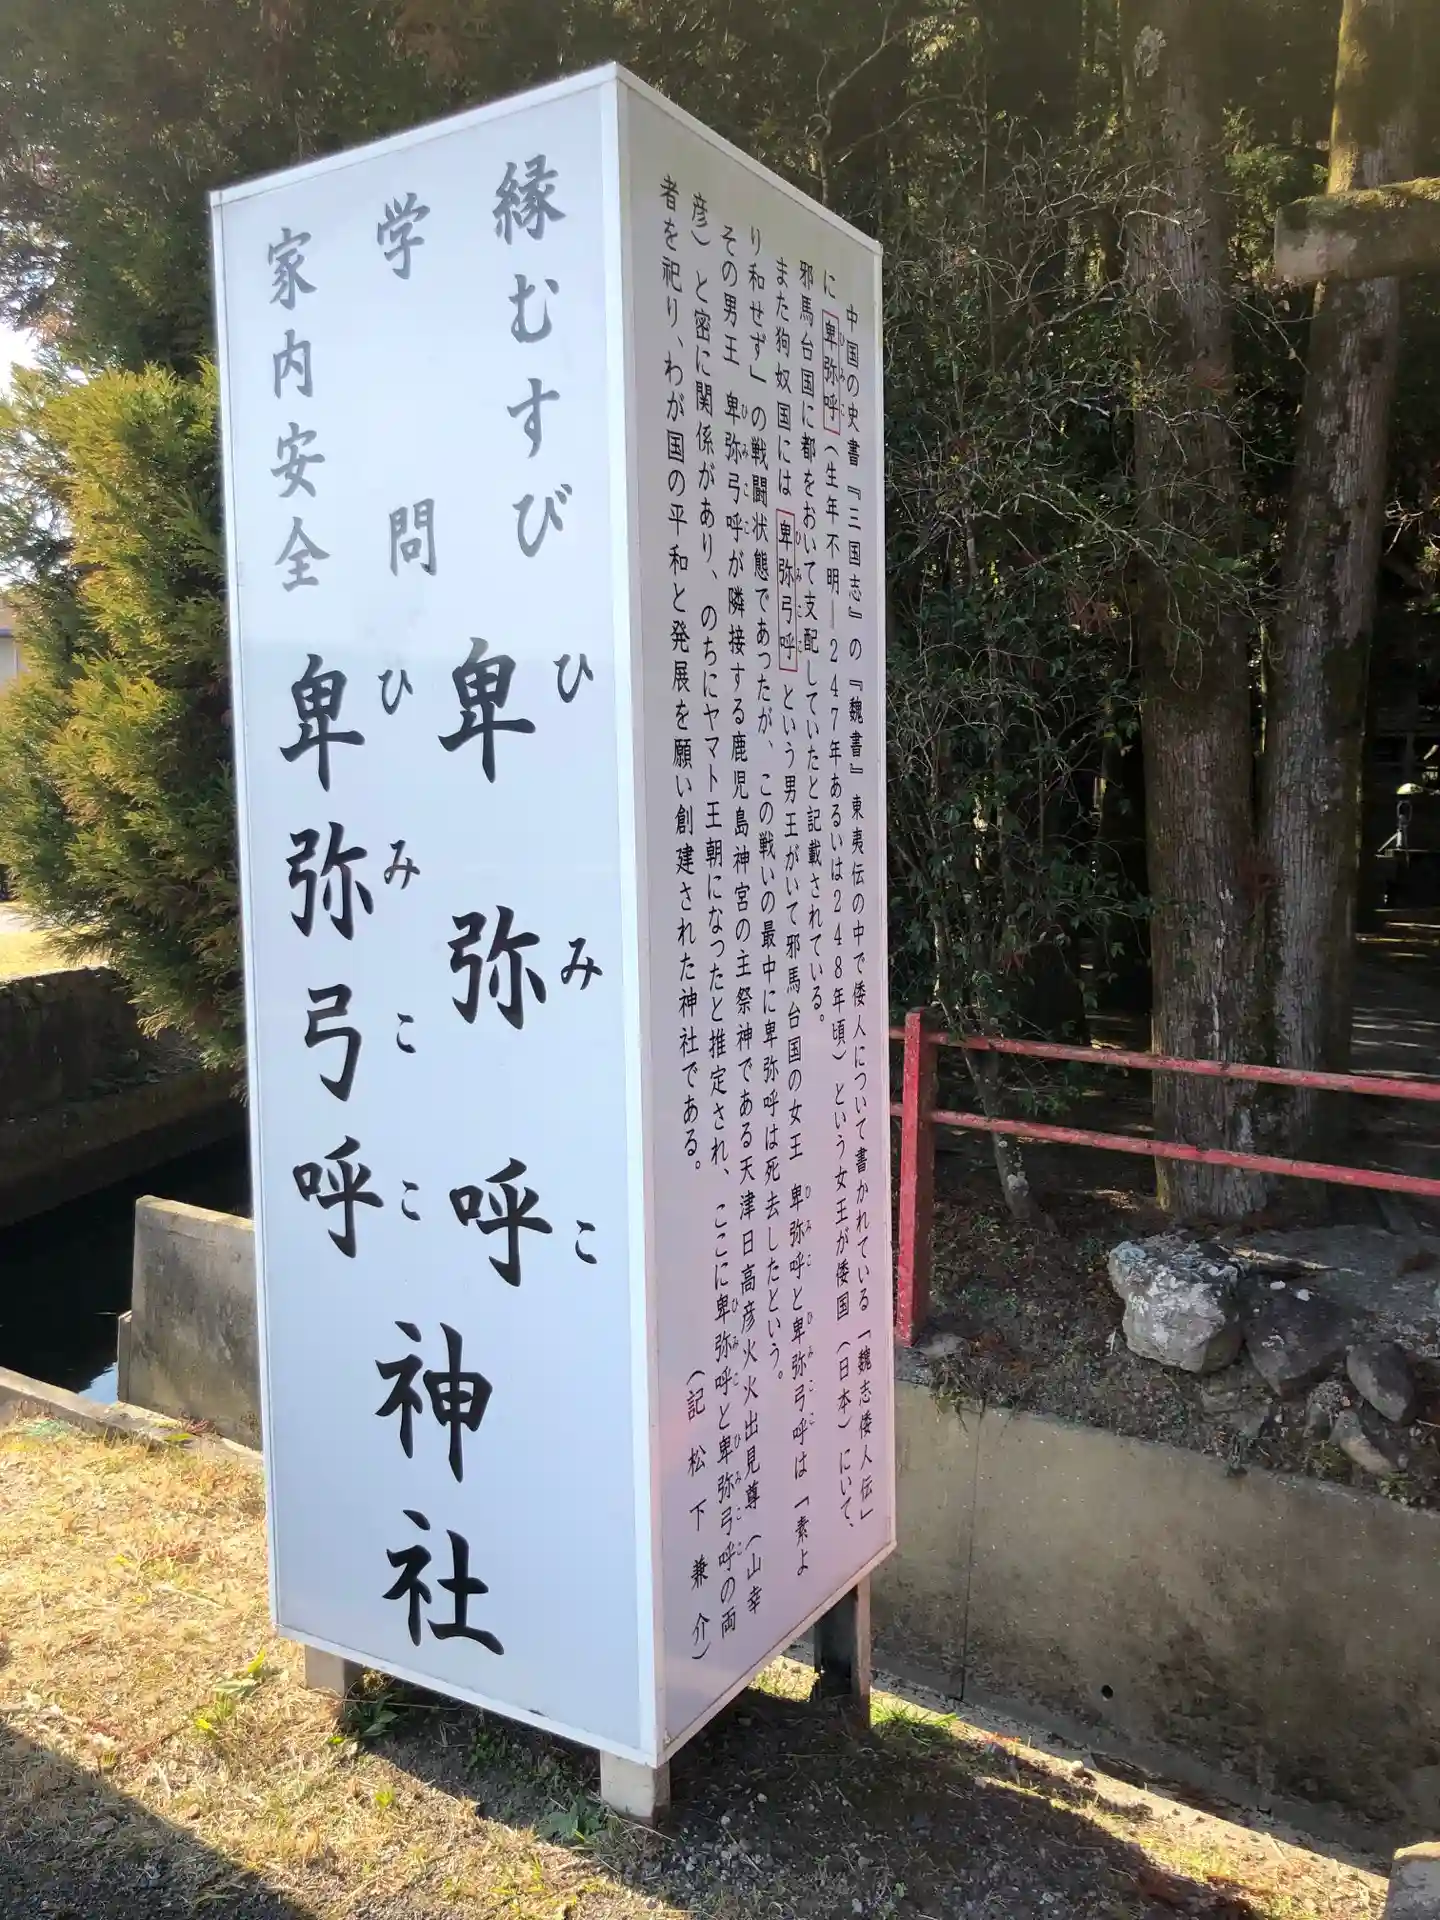 縁むすび
学問
家内安全
卑弥呼
ひみこ
卑弥弓呼
ひみここ
神社
中国の史書『三国志』の『魏書』東夷伝の中で倭人について書かれている「魏志倭人伝」
に卑弥呼(生年不明―247年あるいは248年頃)という女王が倭国(日本)にいて、
ひみこ
邪馬台国に都をおいて支配していたと記載されている。
また狗奴国には卑弥弓呼という男王がいて邪馬台国の女王 卑弥呼と卑弥弓呼は「素よ
ひみここ ひみこ ひみここ
り和せず」の戦闘状態であったが、この戦いの最中に卑弥呼は死去したという。
その男王 卑弥弓呼が隣接する鹿児島神宮の主祭神である天津日高彦火火出見尊(山幸
ひみここ
彦)と密に関係があり、のちにヤマト王朝になつたと推定され、ここに卑弥呼と卑弥弓呼の両
ひみこ ひみここ
者を祀り、わが国の平和と発展を願い創建された神社である。
(記 松下兼介)